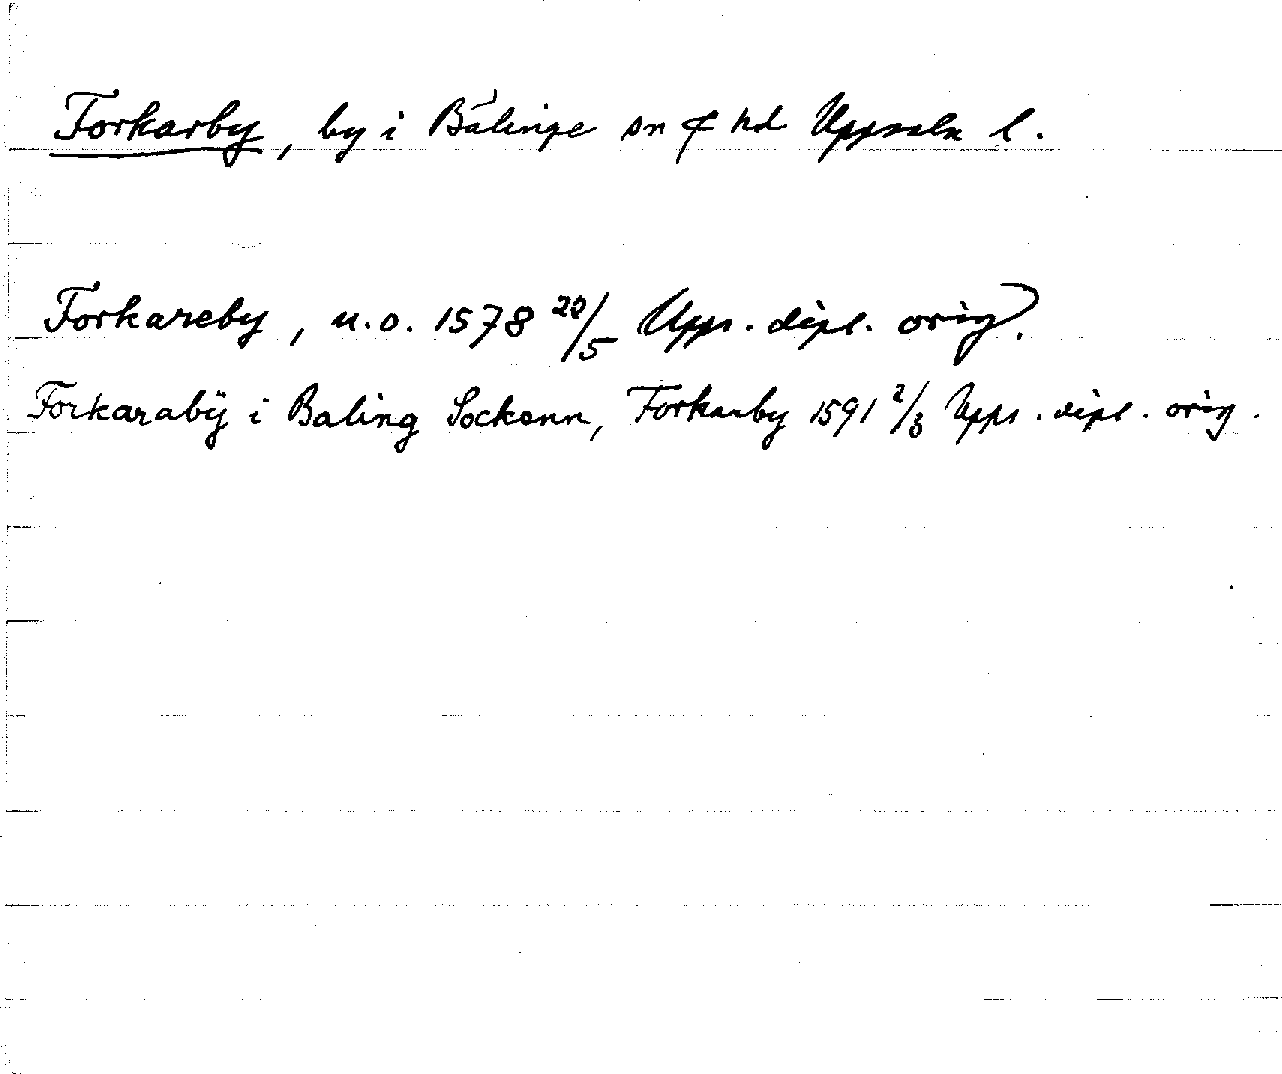 Forkarby, by i Bälinge sn & hd Uppsala l.
Forkareby, u.o. 1578 20/5 Upps. dipl. orig.
Forkarabÿ i Baling Sockenn, Forkarby 1591 2/3 Upps. dipl. orig.